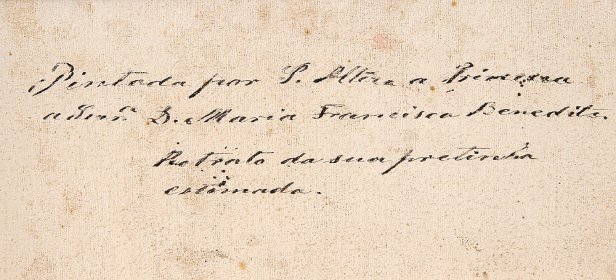 Pintada por S. Alteza a Princeza
a Snrª. D. Maria Francisca Benedita.
Retrato da sua pretinha
estimada.